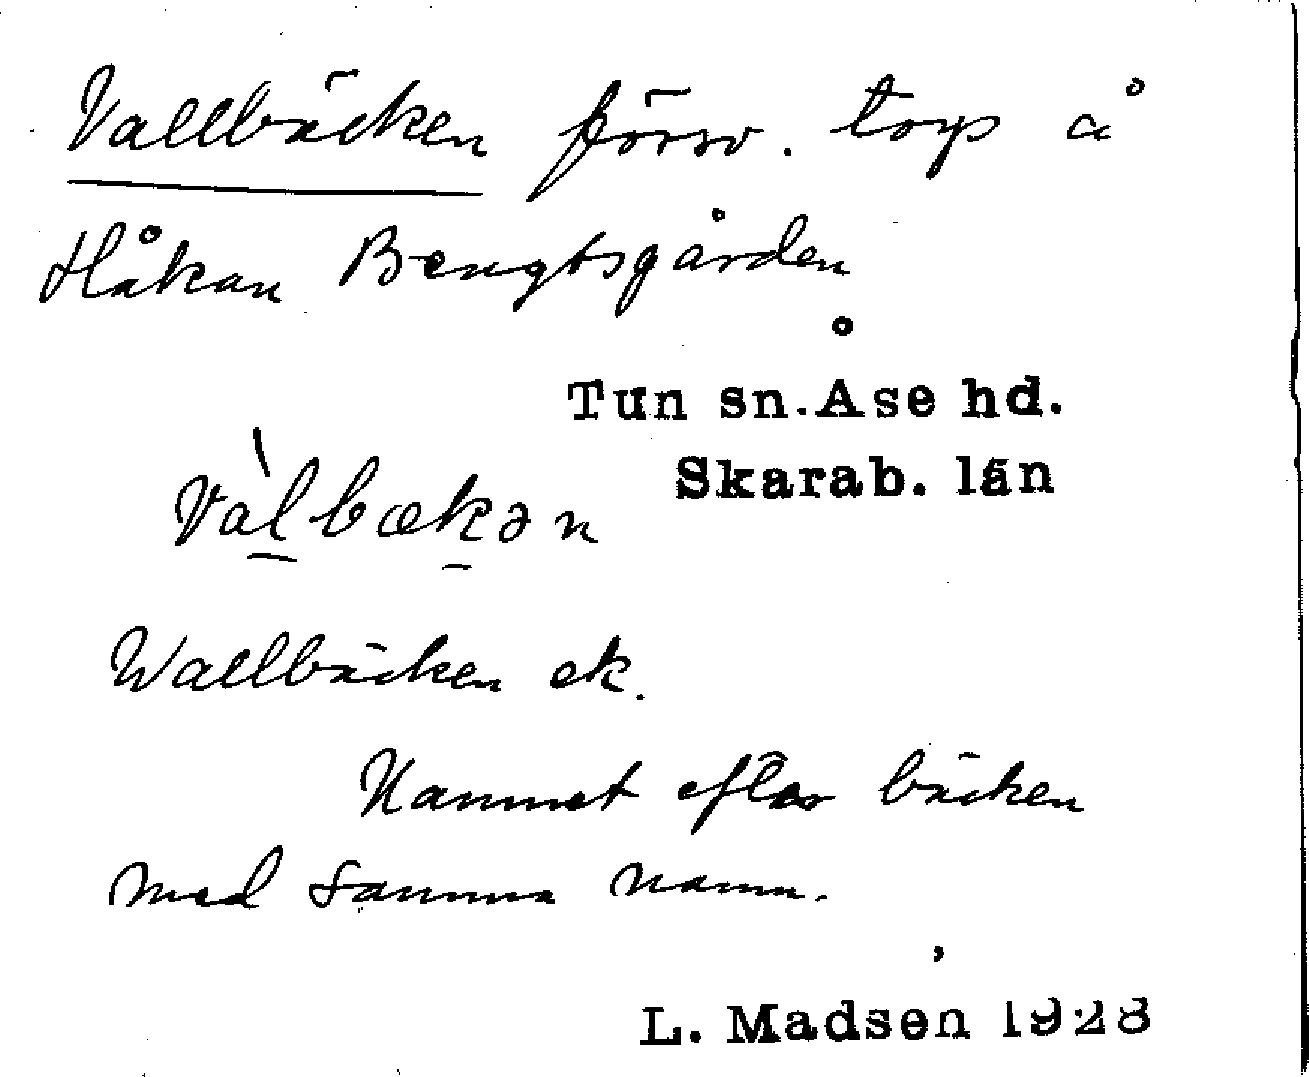 Vallbäcken försv. torp å
Håkan Bengtsgården
Tun sn. Åse hd.
Skarab. län
Vàlbækən
Wallbäcken ek.
Namnet efter bäcken
med samma namn.
L. Madsen 1928